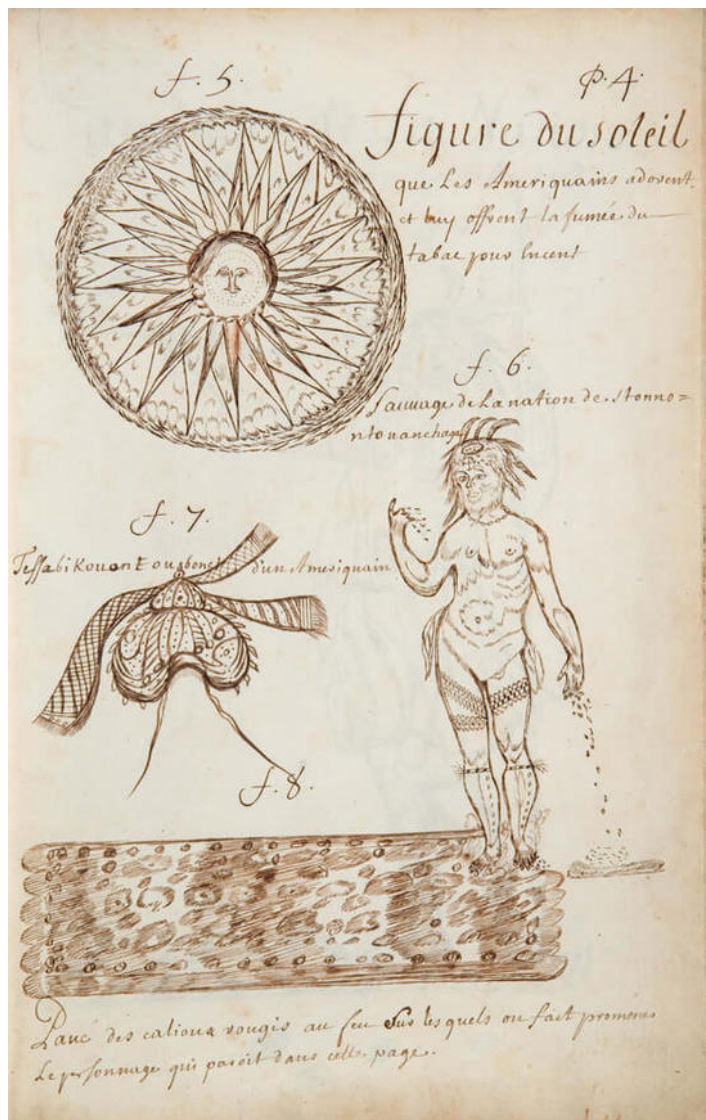 f. 5.
P. 4.
figure du soleil
que Les Ameriquains adorent,
et luy offrent la fumée du
tabac pour Encent
f. 6.
Sauvage de La nation de.s tonno=
ntouanchaga
f. 7.
d'un Ameriquain
f. 8.
Pavé des calioux rougis au feu Sur les quels on fait promener
Le personnage qui paroît dans cette page.